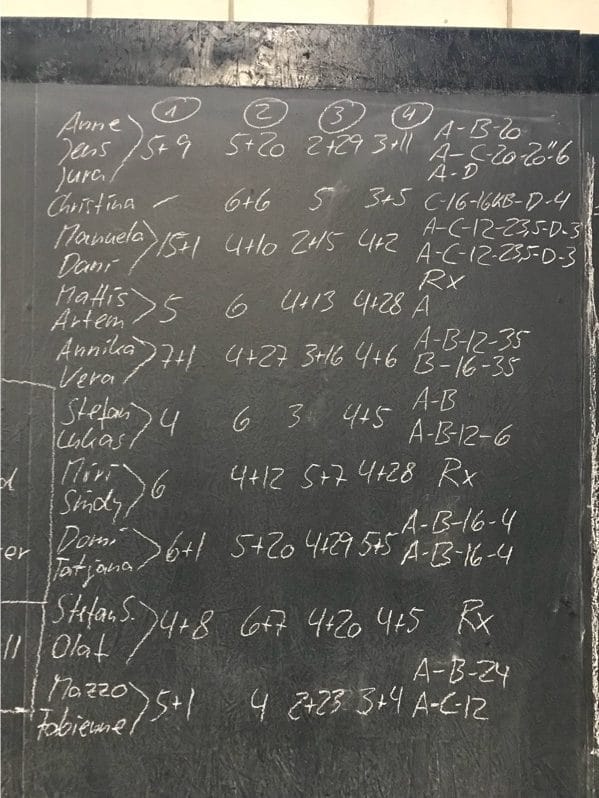 1 2 3 4
Anne A-B-20
Jens 5+9 5+20 2+29 3+11 A-C-20-20"6
Jura A-D
Christina - 6+6 5 3+5 C-16-16KB-D-4
Manuela A-C-12-23,5-D-3
15+1 4+10 2+15 4+2
Dani A-C-12-23,5-D-3
Mattis Rx
5 6 4+13 4+28
Artem A
Annika A-B-12-35
7+1 4+27 3+16 4+6
Vera B-16-35
Stefan A-B
4 6 3 4+5
Lukas A-B-12-6
Miri
6 4+12 5+7 4+28 Rx
Sindy
Domi A-B-16-4
6+1 5+20 4+29 5+5
Tatjana A-B-16-4
er
Stefan S.
4+8 6+7 4+20 4+5 Rx
Olaf
ll
Mazzo A-B-24
5+1 4 2+23 3+4
Fabienne A-C-12